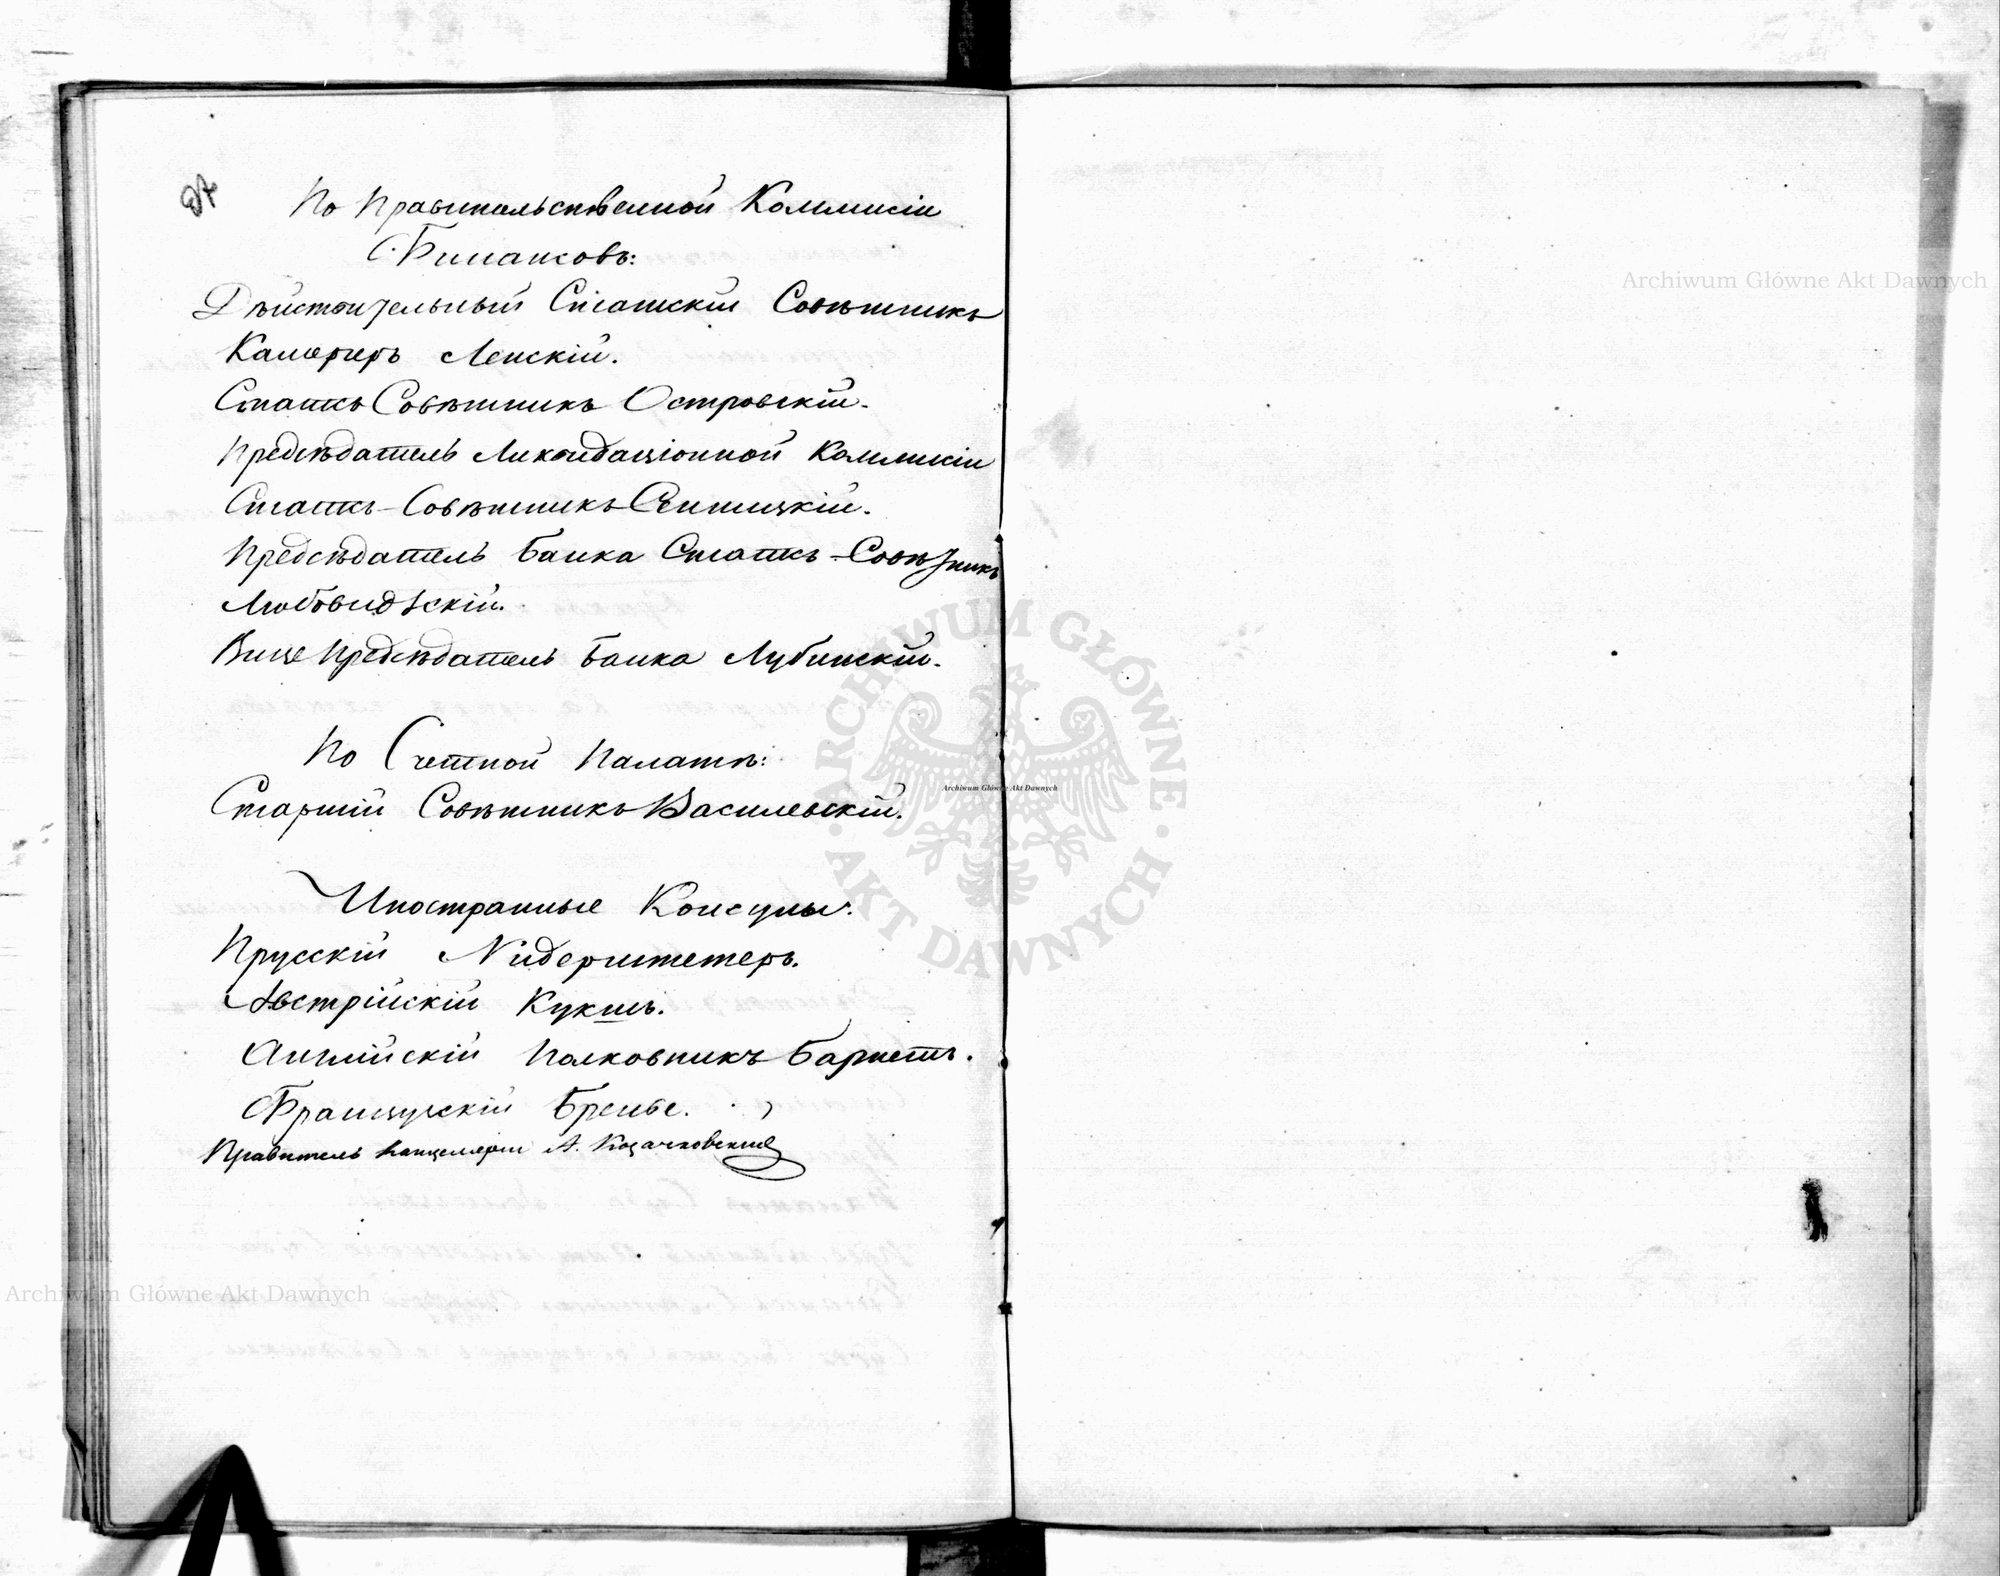 По Правительственной Коммисіи
Финансовъ:
Дѣйствительный Статскій Совѣтникъ
Камергеръ Ленскій.
Статсъ Совѣтникъ Островскій.
Предсѣдатель Ликвидаціонной Коммисіи
Статсъ-Совѣтникъ
Предсѣдатель Банка Статсъ-Совѣтникъ
Любовидзскій.
Вице Предсѣдатель Банка Лубинскій.
По Счетной Палатѣ:
Старшій Совѣтникъ Василевскій.
Иностранные Консулы:
Прусскій Нидерштетеръ.
Австрійскій Кукшъ.
Англійскій Полковникъ Барнетъ.
Французскій
Правитель Канцеляріи А. Козачковскій
Archiwum Główne Akt Dawnych
ARCHIWUM GŁÓWNE · AKT DAWNYCH ·
Archiwum Główne Akt Dawnych
Archiwum Główne Akt Dawnych